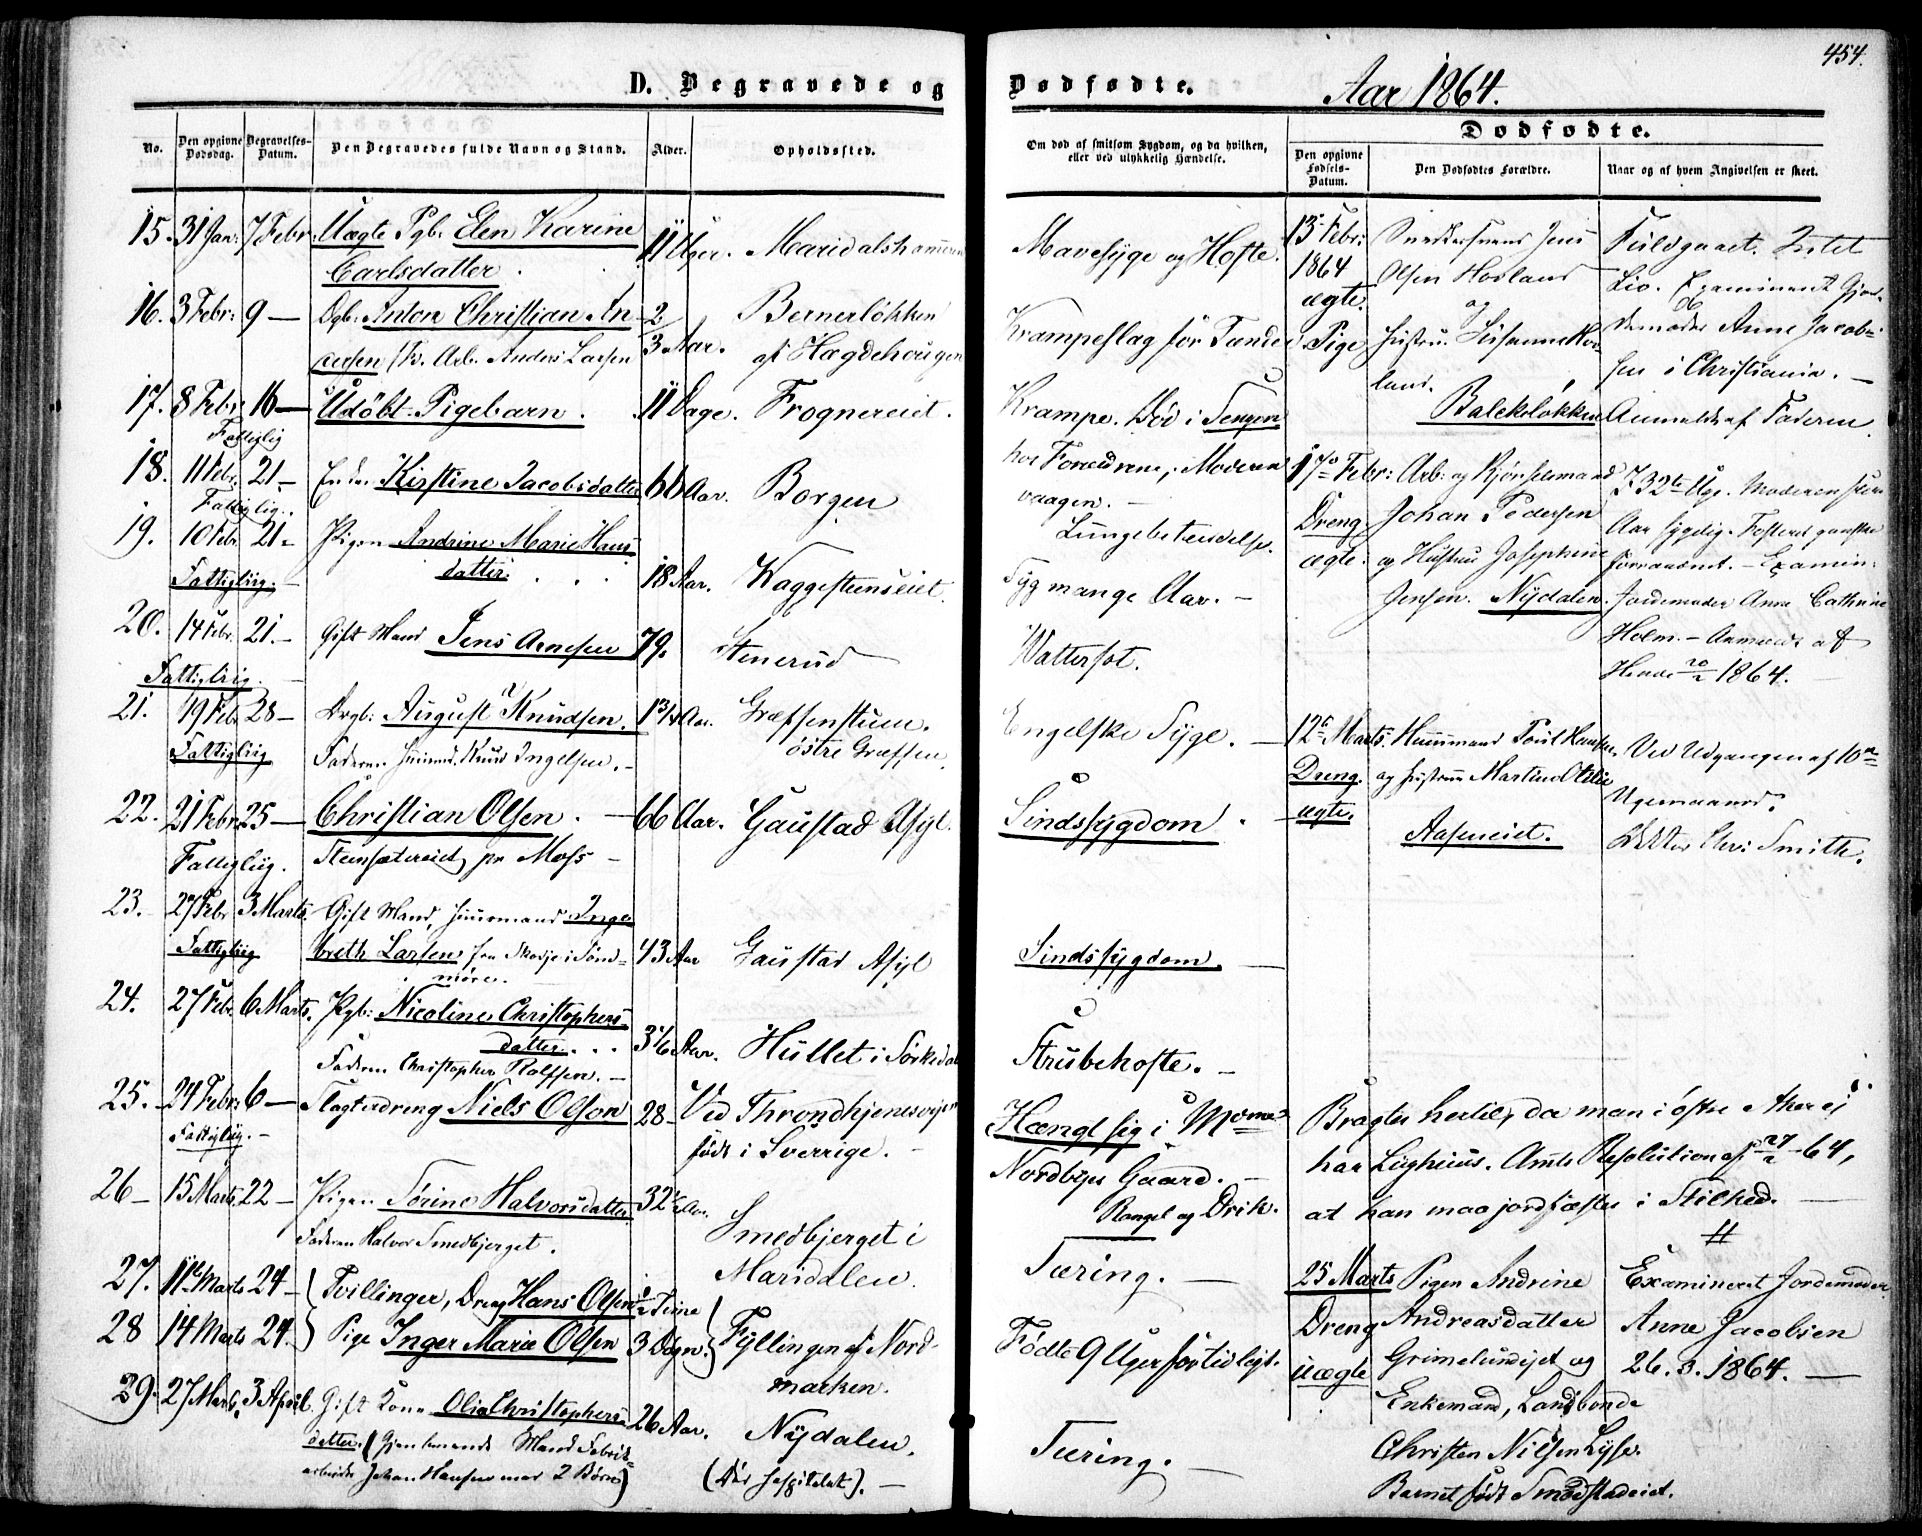 454.
D. Begravede og Dødfødte. Aar 1864.
No.
Den opgivne Dødsdag.
Begravelses-Datum.
Den Begravedes fulde Navn og Stand.
Alder.
Opholdssted.
Om død af smitsom Sygdom, og da hvilken,
eller ved ulykkelig Hændelse.
Dødfødte.
Den opgivne Fødsels-Datum.
Den Dødfødtes Forældre.
Naar og af hvem Angivelsen er skeet.
15. 31 Jan: 7 Febr. Uægte Pgb. Elen Karine
Carlsdatter. 11 Uger. Maridalshammeren
Mavesyge og Hoste.
16. 3 Febr: 9 — Dgb: Anton Christian An-
dersen Arb. Anders Larsen 2/3 Aar. Bernerløkken
af Hægdehougen
Krampeslag for Tænder
17. 8 Febr 16 — Udøbt Pigebarn. 11 Dage. Frognereiet.
Krampe. Død i Sengen
hos Forældrene, Moderen
vaagen. —
Fattiglig
18. 11 Febr. 21 — Enke Kirstine Jacobsdatter 66 Aar. Borgen
Lungebetændelse.
Fattiglig.
19. 10 Febr. 21 - Pigen Andrine Marie Hans-
datter. 18 Aar. Waggesteenseiet.
Syg mange Aar. —
Fattiglig.
20. 14 Febr. 21. — Gift Mand Jens Arnesen 79. Stenerud
Wattersot.
Fattiglig.
21. 19 Feb 28 — Drgb: August Knudsen. 1 3/4 Aar. Græfsenstuen.
Faderen Huusmd. Knud Ingelsen. — østre Græfsen.
Engelske Syge. —
Fattiglig
22. 21 Febr. 25 — Christian Olsen. — 66 Aar. Gaustad Asyl.
Steensætereiet pr Moss —
Sindssygdom.
Fattiglig.
23. 27 Febr 3 Marts. Gift Mand, Huusmand Inge-
breth Larsen fra Skodje i Sønd-
møre. 43 Aar Gaustad Asyl
Sindssygdom. —
Fattiglig
24. 27 Febr. 6 Marts. Pgb: Nicoline Christophers-
datter. 3 1/6 Aar. Hullet i Sørkedal
Faderen Christopher Rolfsen. —
Strubehoste. —
25. 24 Febr: 6 — Slagterdreng Niels Olson 28 — Ved Throndhjemsveien
født i Sverrige. —
Hængt sig i
Nordbyes Gaard. —
Rangel og Drik.
Fattiglig. —
Bragtes hertil, da man i østre Aker ei
har Liighuus. Amts Resolution af 27/2 — 64,
at han maa jordfæstes i Stilhed. —
26 — 15 Marts. 22 — Pigen Sørine Halvorsdatter 32 Aar. Smedbjerget i
Faderen Halvor Smedbjerget. Maridalen.
Tæring. —
27. 11te Marts 24 — Tvillinger, Dreng Hans Olsen Time
28 14 Marts 24. Pige Inger Marie Olsen 3 Døgn. Fyllingen af Nord-
marken.
Fødte 9 Uger for tidligt.
29. 27 Marts. 3 April. Gift Kone Olia Christophers-
datter. (Gjenlevende Mand Fabrik-
arbeider Johan Hansen med 2 Børn) 26 Aar. Nydalen.
(Død Hospitalet). —
Tæring. —
13 Febr: 1864 ægte Pige
Snedkersvend Jens
Olsen Hovland
og
Hustru Susanne Hov-
land.
Balckeløkken
Fuldgaaet. Intet
Liv. Examineret Gjor-
demoder Anne Jacob-
sen i Christiania. —
Anmeldt af Faderen
17de Febr: Dreng ægte.
Arb: og Kjørselsmand
Johan Pedersen
og Hustru Josephine
Jensen. Nydalen.
I 32te Uge. Moderen
Aar sygelig. Fosteret ganske
forraadnet. — Examin.
Jordemoder Anne Cathrine
Holm. — Anmeldt af
Hende 20/2 1864. —
12te Marts. Dreng. ægte.
Huusmand Poul Hansen
og Hustru Martine Otilie
Aaseneiet.
Ved Udgangen af 10de
Ugemaaned.
Doktor Chr: Smith.
25 Marts Dreng uægte
Pigen Andrine
Andreasdatter
Grimelundeiet og
Enkemand, Landbonde
Christen Nilsen Lysø.
Barnet født Smødstadeiet.
Examineret Jordemoder
Anne Jacobsen
26. 3. 1864. —